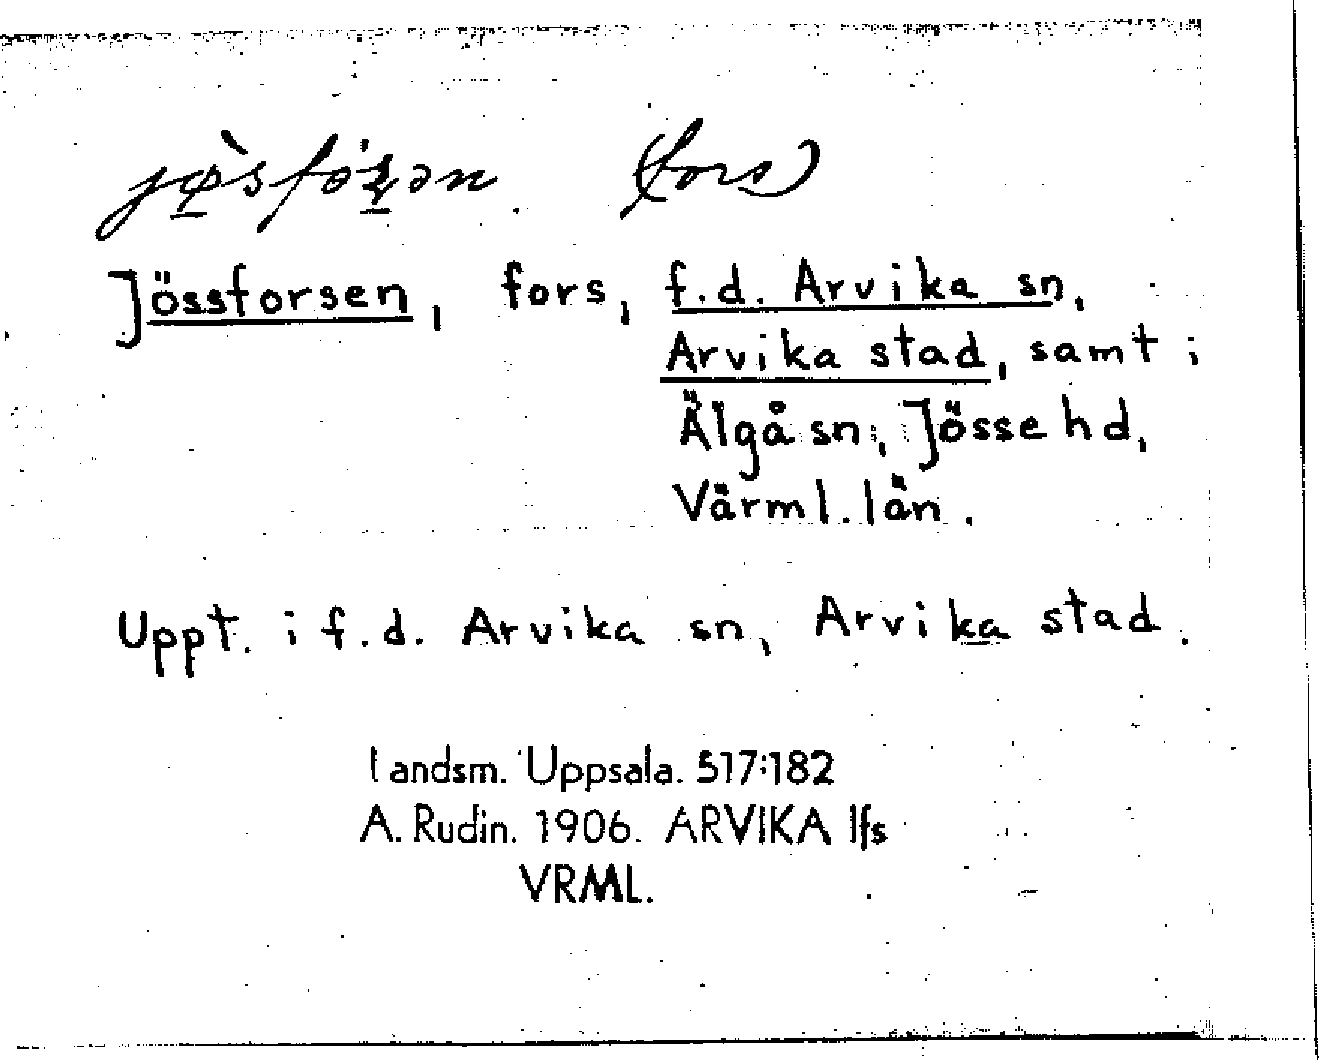 jø̀sfòʂən (fors)
Jössforsen, fors, f.d. Arvika sn,
Arvika stad, samt i
Älgå sn, Jösse hd,
Värml. län.
Uppt. i f.d. Arvika sn, Arvika stad.
Landsm. Uppsala. 517:182
A. Rudin. 1906. ARVIKA lfs
VRML.